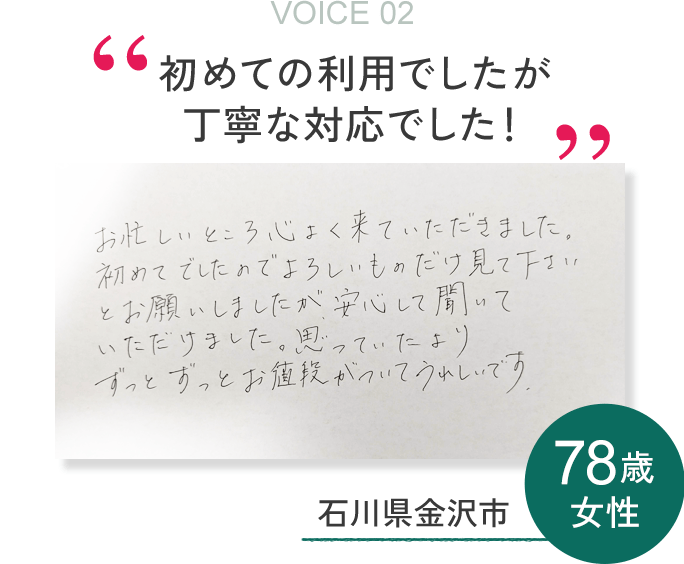 VOICE 02
“初めての利用でしたが
丁寧な対応でした！”
お忙しいところ心よく来ていただきました。
初めてでしたのでよろしいものだけ見て下さい
とお願いしましたが、安心して聞いて
いただけました。思っていたより
ずっとずっとお値段がついてうれしいです.
78歳
女性
石川県金沢市